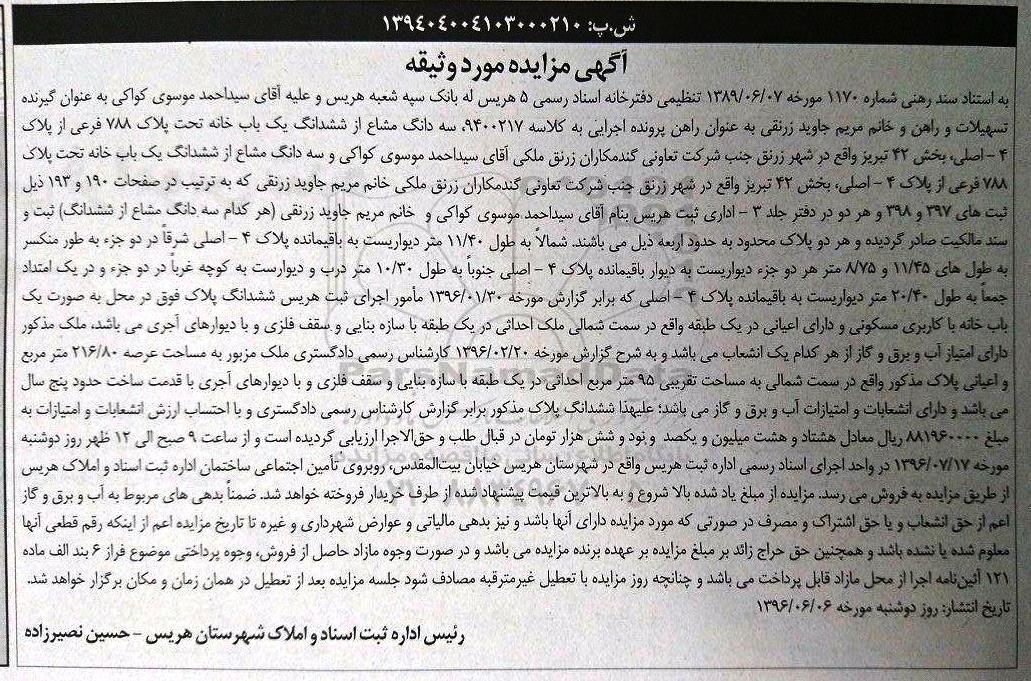 ش.پ: ۱۳۹۴۰۴۰۰۴۱۰۳۰۰۰۲۱۰
آگهی مزایده مورد وثیقه
به استناد سند رهنی شماره ۱۱۷۰ مورخه ۱۳۸۹/۰۶/۰۷ تنظیمی دفترخانه اسناد رسمی ۵ هریس له بانک سپه شعبه هریس و علیه آقای سیداحمد موسوی کواکی به عنوان گیرنده
تسهیلات و راهن و خانم مریم جاوید زرنقی به عنوان راهن پرونده اجرایی به کلاسه ۹۴۰۰۲۱۷، سه دانگ مشاع از ششدانگ یک باب خانه تحت پلاک ۷۸۸ فرعی از پلاک
۴ - اصلی، بخش ۴۲ تبریز واقع در شهر زرنق جنب شرکت تعاونی گندمکاران زرنق ملکی آقای سیداحمد موسوی کواکی و سه دانگ مشاع از ششدانگ یک باب خانه تحت پلاک
۷۸۸ فرعی از پلاک ۴ - اصلی، بخش ۴۲ تبریز واقع در شهر زرنق جنب شرکت تعاونی گندمکاران زرنق ملکی خانم مریم جاوید زرنقی که به ترتیب در صفحات ۱۹۰ و ۱۹۳ ذیل
ثبت های ۳۹۷ و ۳۹۸ و هر دو در دفتر جلد ۳ - اداری ثبت هریس بنام آقای سیداحمد موسوی کواکی و خانم مریم جاوید زرنقی (هر کدام سه دانگ مشاع از ششدانگ) ثبت و
سند مالکیت صادر گردیده و هر دو پلاک محدود به حدود اربعه ذیل می باشند. شمالاً به طول ۱۱/۴۰ متر دیواریست به باقیمانده پلاک ۴ - اصلی شرقاً در دو جزء به طور منکسر
به طول های ۱۱/۴۵ و ۸/۷۵ متر هر دو جزء دیواریست به دیوار باقیمانده پلاک ۴ - اصلی جنوباً به طول ۱۰/۳۰ متر درب و دیوارست به کوچه غرباً در دو جزء و در یک امتداد
جمعاً به طول ۲۰/۴۰ متر دیواریست به باقیمانده پلاک ۴ - اصلی که برابر گزارش مورخه ۱۳۹۶/۰۱/۳۰ مأمور اجرای ثبت هریس ششدانگ پلاک فوق در محل به صورت یک
باب خانه با کاربری مسکونی و دارای اعیانی در یک طبقه واقع در سمت شمالی ملک احداثی در یک طبقه با سازه بنایی و سقف فلزی و با دیوارهای آجری می باشد، ملک مذکور
دارای امتیاز آب و برق و گاز از هر کدام یک انشعاب می باشد و به شرح گزارش مورخه ۱۳۹۶/۰۲/۲۰ کارشناس رسمی دادگستری ملک مزبور به مساحت عرصه ۲۱۶/۸۰ متر مربع
و اعیانی پلاک مذکور واقع در سمت شمالی به مساحت تقریبی ۹۵ متر مربع احداثی در یک طبقه با سازه بنایی و سقف فلزی و با دیوارهای آجری با قدمت ساخت حدود پنج سال
می باشد و دارای انشعابات و امتیازات آب و برق و گاز می باشد؛ علیهذا ششدانگ پلاک مذکور برابر گزارش کارشناس رسمی دادگستری و با احتساب ارزش انشعابات و امتیازات به
مبلغ ۸۸۱۹۶۰۰۰۰ ریال معادل هشتاد و هشت میلیون و یکصد و نود و شش هزار تومان در قبال طلب و حق‌الاجرا ارزیابی گردیده است و از ساعت ۹ صبح الی ۱۲ ظهر روز دوشنبه
مورخه ۱۳۹۶/۰۷/۱۷ در واحد اجرای اسناد رسمی اداره ثبت هریس واقع در شهرستان هریس خیابان بیت‌المقدس، روبروی تأمین اجتماعی ساختمان اداره ثبت اسناد و املاک هریس
از طریق مزایده به فروش می رسد. مزایده از مبلغ یاد شده بالا شروع و به بالاترین قیمت پیشنهاد شده از طرف خریدار فروخته خواهد شد. ضمناً بدهی های مربوط به آب و برق و گاز
اعم از حق انشعاب و یا حق اشتراک و مصرف در صورتی که مورد مزایده دارای آنها باشد و نیز بدهی مالیاتی و عوارض شهرداری و غیره تا تاریخ مزایده اعم از اینکه رقم قطعی آنها
معلوم شده یا نشده باشد و همچنین حق حراج زائد بر مبلغ مزایده بر عهده برنده مزایده می باشد و در صورت وجوه مازاد حاصل از فروش، وجوه پرداختی موضوع فراز ۶ بند الف ماده
۱۲۱ آئین‌نامه اجرا از محل مازاد قابل پرداخت می باشد و چنانچه روز مزایده با تعطیل غیرمترقبه مصادف شود جلسه مزایده بعد از تعطیل در همان زمان و مکان برگزار خواهد شد.
تاریخ انتشار: روز دوشنبه مورخه ۱۳۹۶/۰۶/۰۶
رئیس اداره ثبت اسناد و املاک شهرستان هریس - حسین نصیرزاده
ParsNamadData